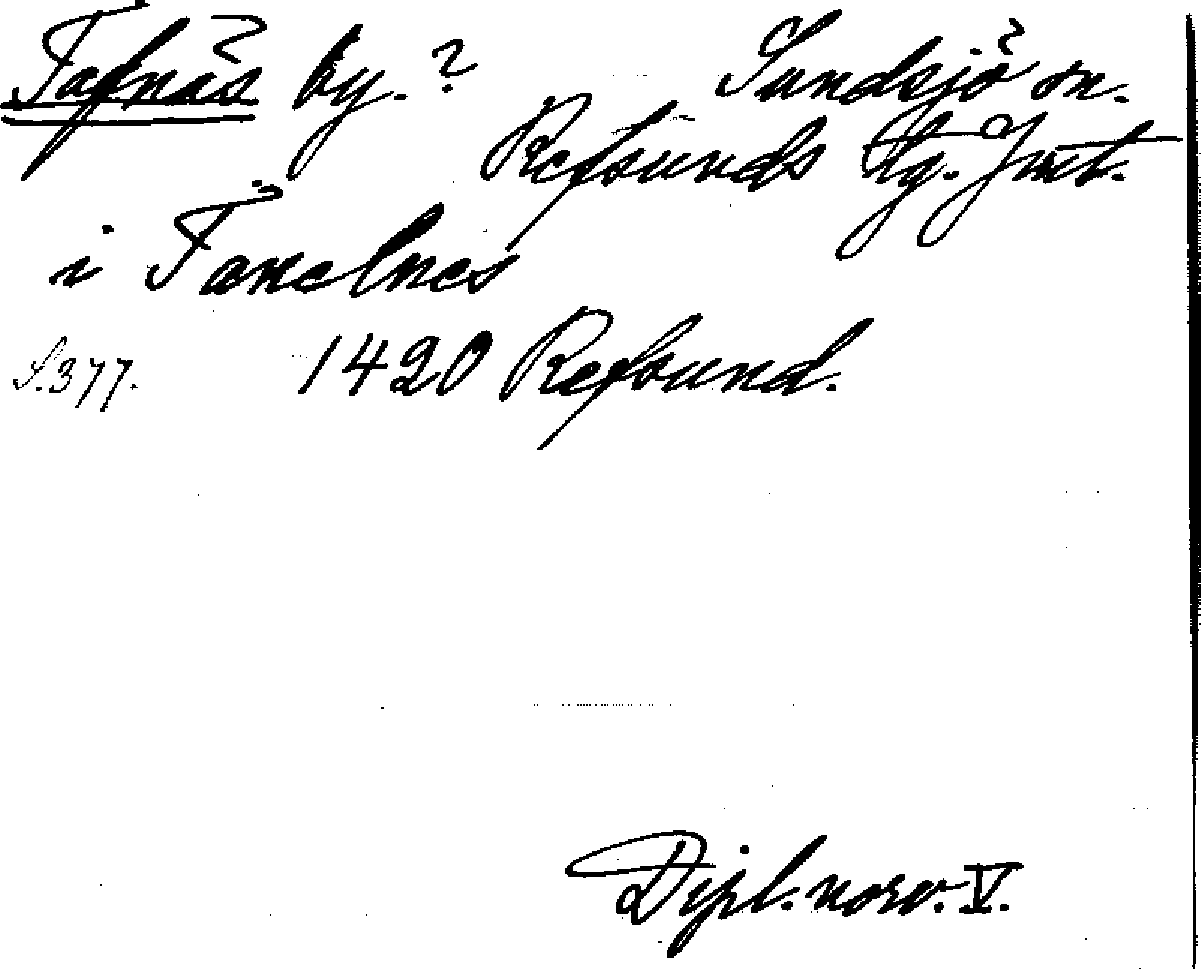 Tafnäs by.? Sundsjö sn.
Refsunds tg. Jmt.
i Taxelnes
S.377. 1420 Refsund.
Dipl. norv. V.